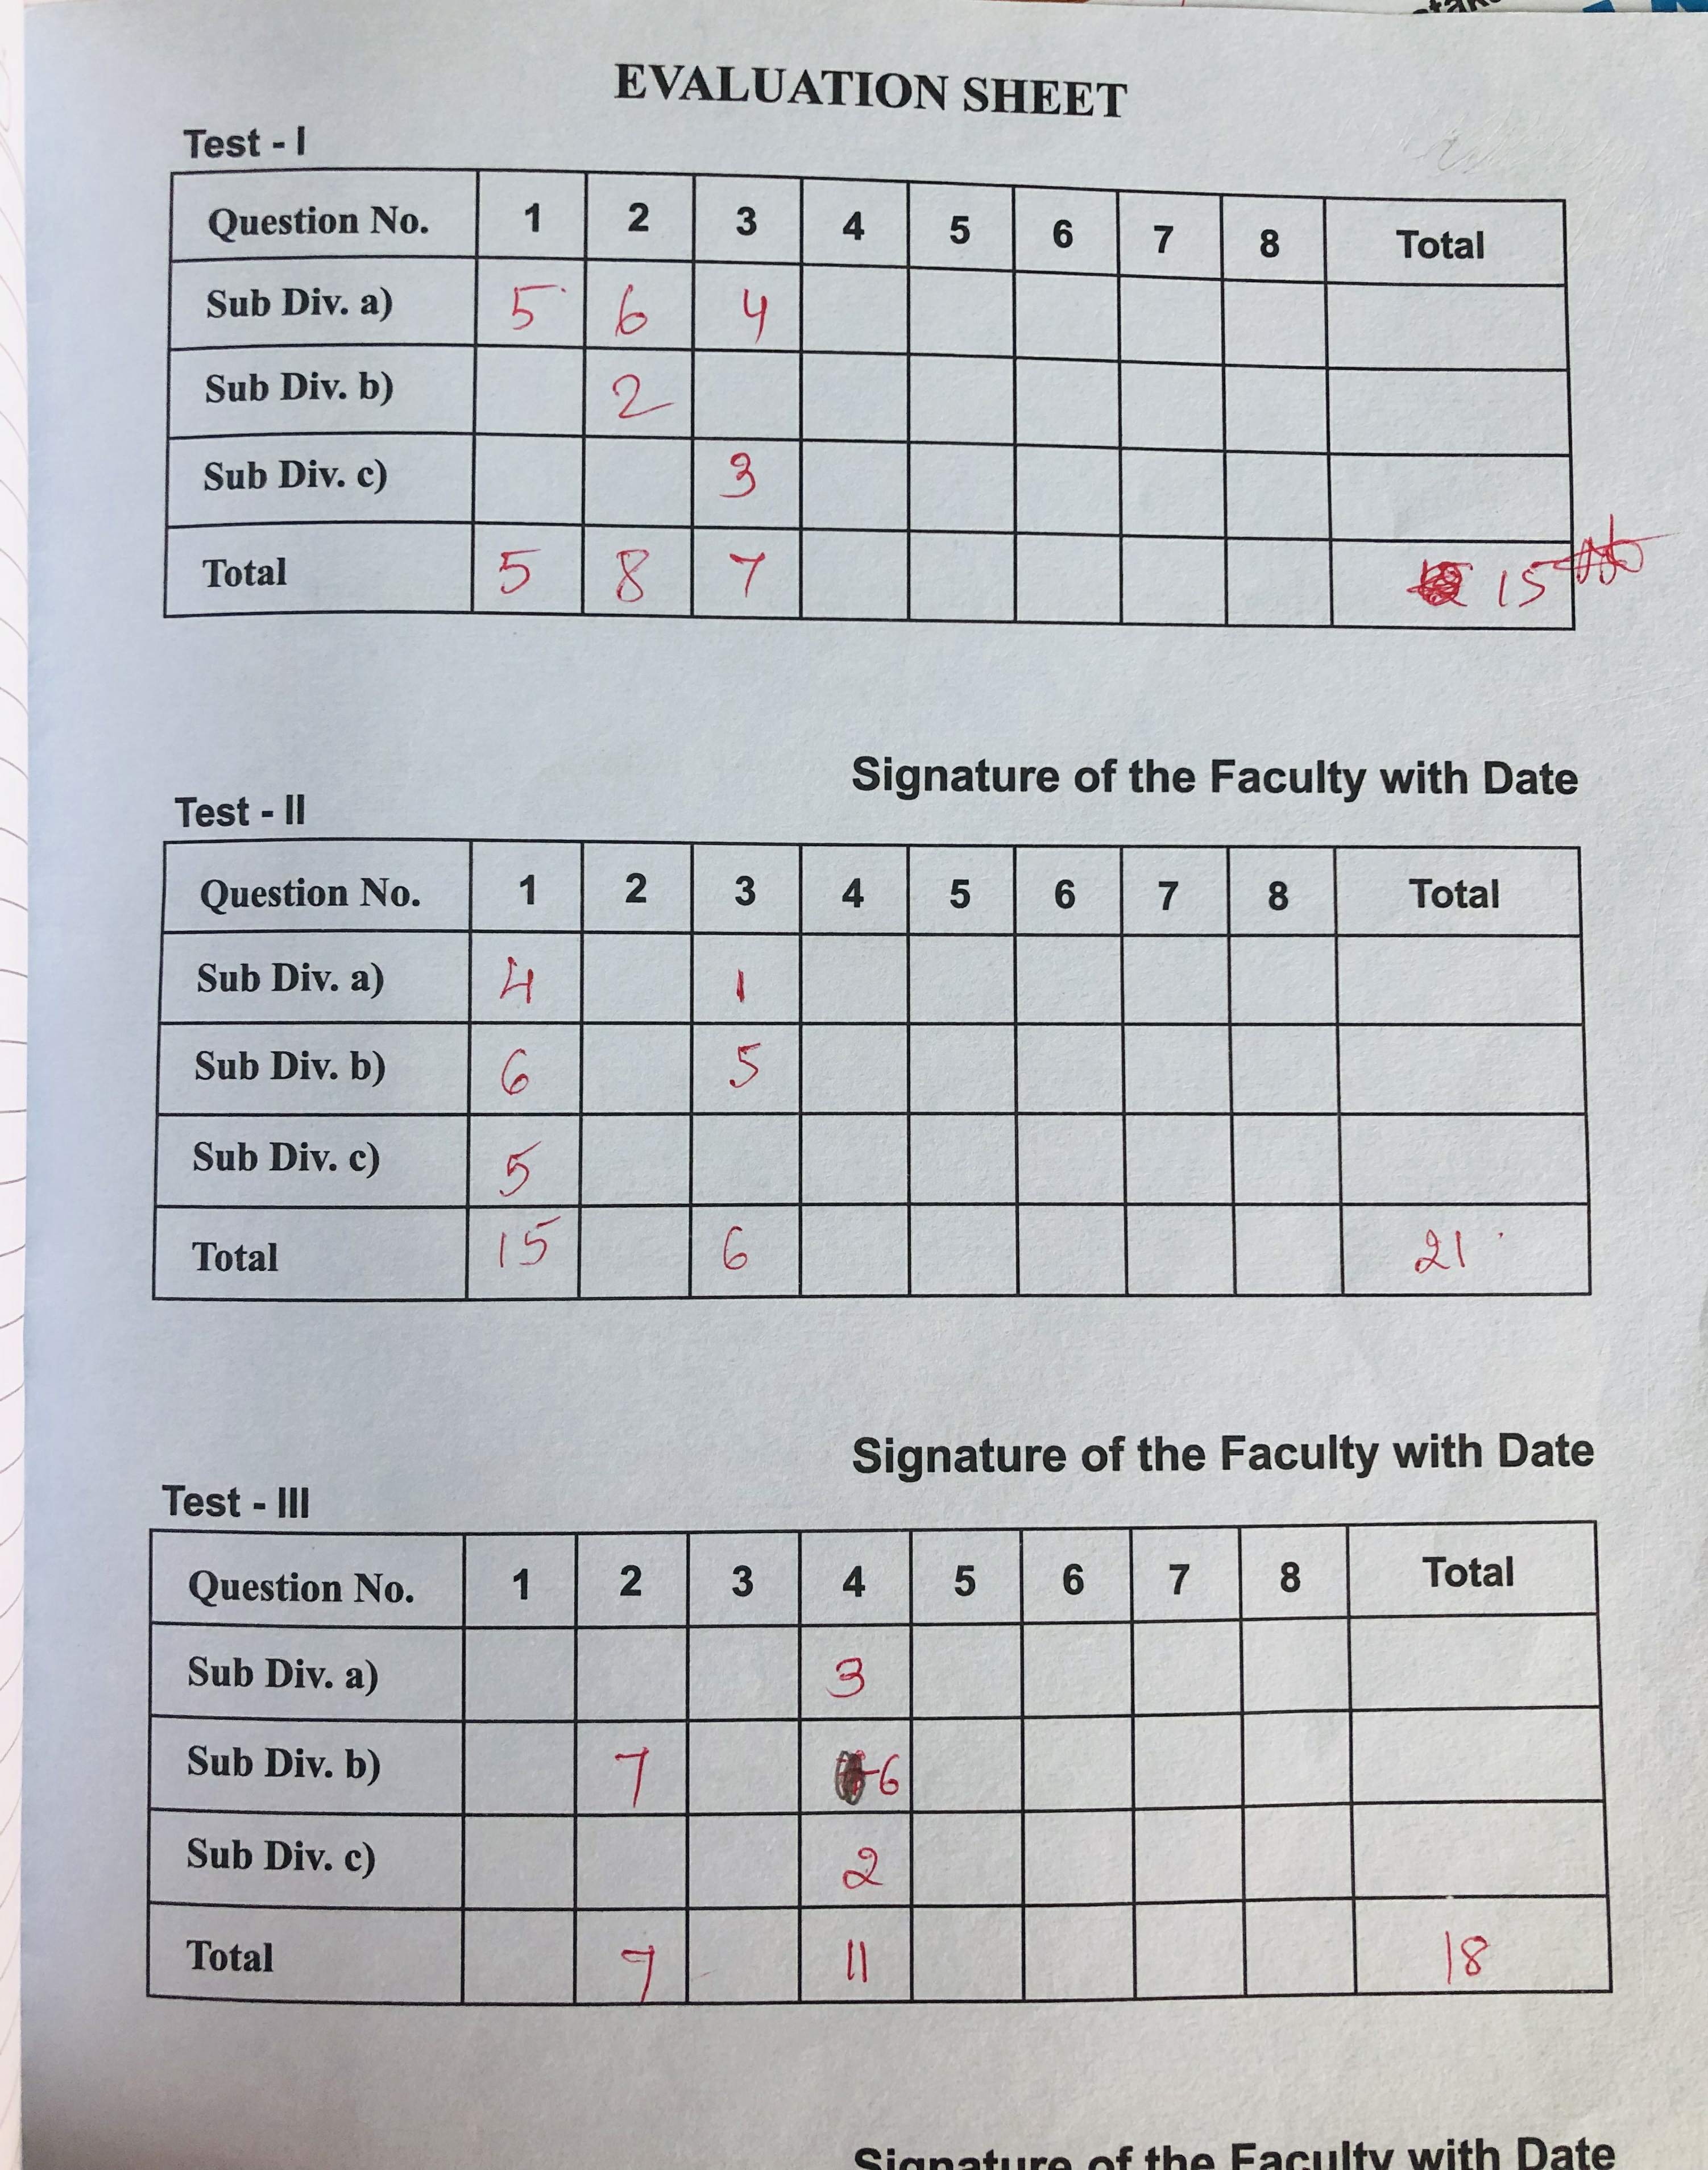 EVALUATION SHEET
Test - I
Question No. 1 2 3 4 5 6 7 8 Total
Sub Div. a) 5 6 4
Sub Div. b) 2
Sub Div. c) 3
Total 5 8 7 15
Signature of the Faculty with Date
Test - II
Question No. 1 2 3 4 5 6 7 8 Total
Sub Div. a) 4 1
Sub Div. b) 6 5
Sub Div. c) 5
Total 15 6 21
Signature of the Faculty with Date
Test - III
Question No. 1 2 3 4 5 6 7 8 Total
Sub Div. a) 3
Sub Div. b) 7 6
Sub Div. c) 2
Total 7 11 18
Signature of the Faculty with Date